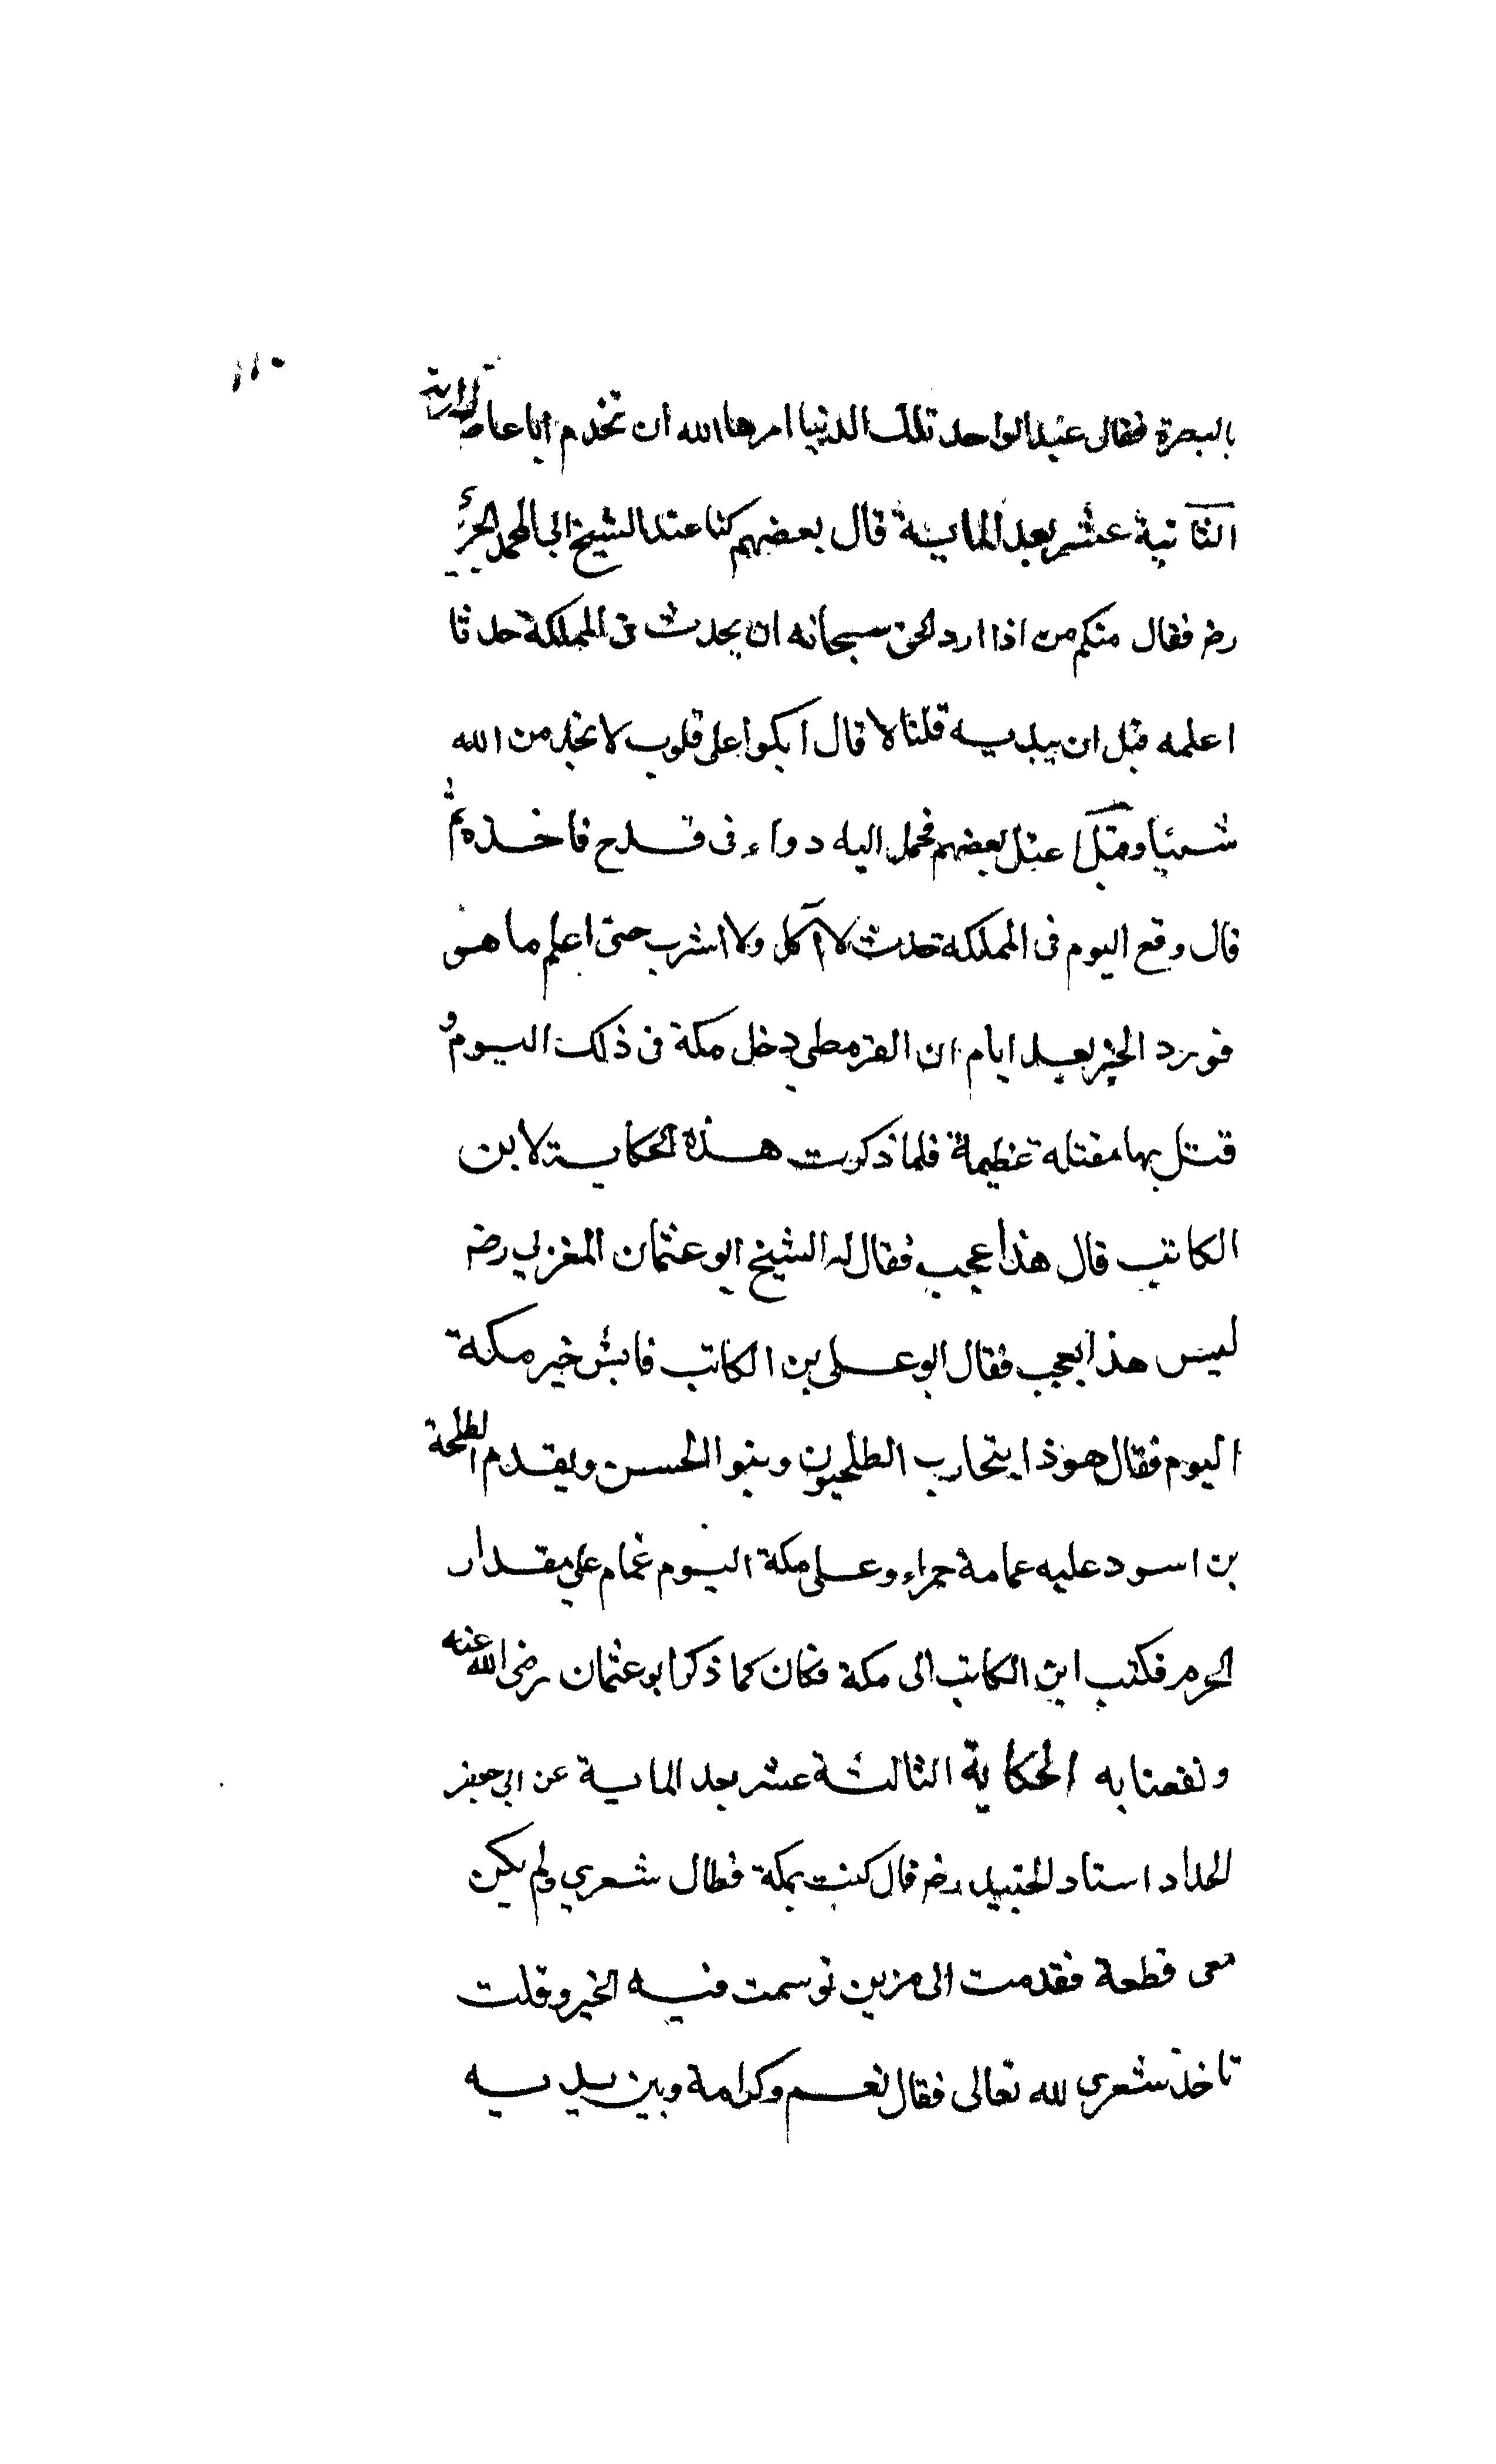 ١١٠
بالبصرة فقال عبد الواحد تلك الدنيا امرها الله ان تخدم ابا عاصم
الثانية عشر بعد الماية قال بعضهم كنا عند الشيخ ابي محمد الحريري
رضر فقال منكم من اذا ارد الحق سبحانه ان يحدث في المملكة حدثا
اعلمه قبل ان يبديه قلنا لا قال ابكوا على قلوب لا تجد من الله
شئيا وقبل عتل بعضهم فحمل اليه دواء في قدح فاخذه ثم
قال وقع اليوم في المملكة حدث لا آكل ولا اشرب حتى اعلم ما هو
فورد الخبر بعد ايام ان القرمطي دخل مكة في ذلك اليوم و
قتل بها مقتلة عظيمة فلما ذكرت هذه الحكاية لابن
الكاتب قال هذا عجب فقال له الشيخ ابو عثمان المغربي رضر
ليس هذا بعجب فقال ابو على بن الكاتب فايش خبر مكة
اليوم فقال هو ذا يتحارب الطلحيون وبنو الحسن ويقدم الطلحة
بن اسود عليه عمامة حمراء وعلى مكة اليوم غمام على مقدار
الحرم فكتب ابن الكاتب الى مكة فكان كما ذكر ابو عثمان رضى الله عنه
ونفعنا به الحكاية الثالثة عشر بعد الماية عن ابي جعفر
الحداد استاد الجنيد رضر قال كنت بمكة فطال شعري ولم يكن
معى قطعة فقدمت الى مزين توسمت فيه الخير وقلت
تاخذ شعرى لله تعالى فقال نعم وكرامة وبين يديه